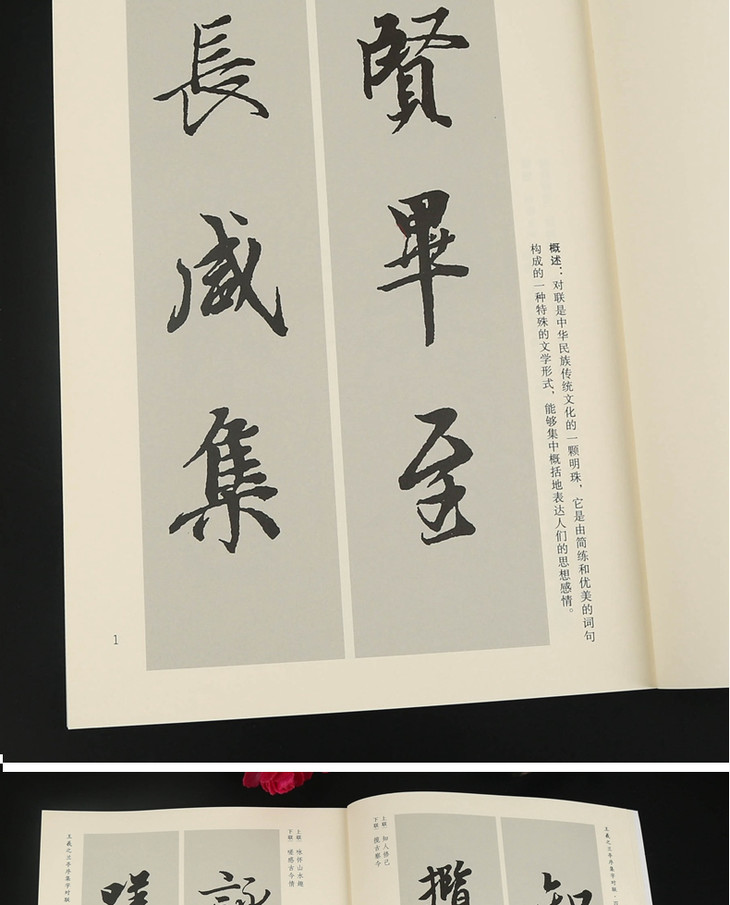 概述：对联是中华民族传统文化的一颗明珠，它是由简练和优美的词句
构成的一种特殊的文学形式，能够集中概括地表达人们的思想感情。
賢畢至
長咸集
1
王羲之兰亭序集字对联
知
攬
上联 知人修己
下联
上联
下联
詠
王羲之兰亭序集字对联